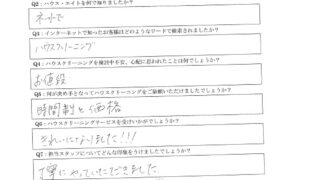 Q2：ハウス・エイトを何で知りましたか？
ネットで
Q3：インターネットで知ったお客様はどのようなワードで検索されましたか？
ハウスクリーニング
Q4：ハウスクリーニングを検討中不安、心配に思われたことは何でしょうか？
お値段
Q5：何が決め手となってハウスクリーニングをご依頼いただけましたでしょうか？
時間制と価格
Q6：ハウスクリーニングサービスを受けいかがでしたか？
きれいになりました!!!
Q7：担当スタッフについてどんな印象をうけましたでしょうか？
丁寧にやっていただきました